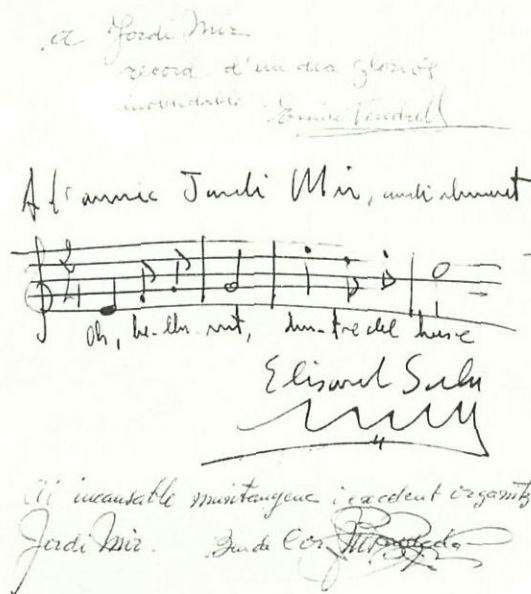 a Jordi Mir
record d'un dia gloriós
inovidable Emili Vendrell
A l'amic Jordi Mir,
Oh, be-lla nit, dins-tre del
Elisard Sala
Al incansable muntanyenc i excelent organitz
Jordi Mir. Bon de Cor